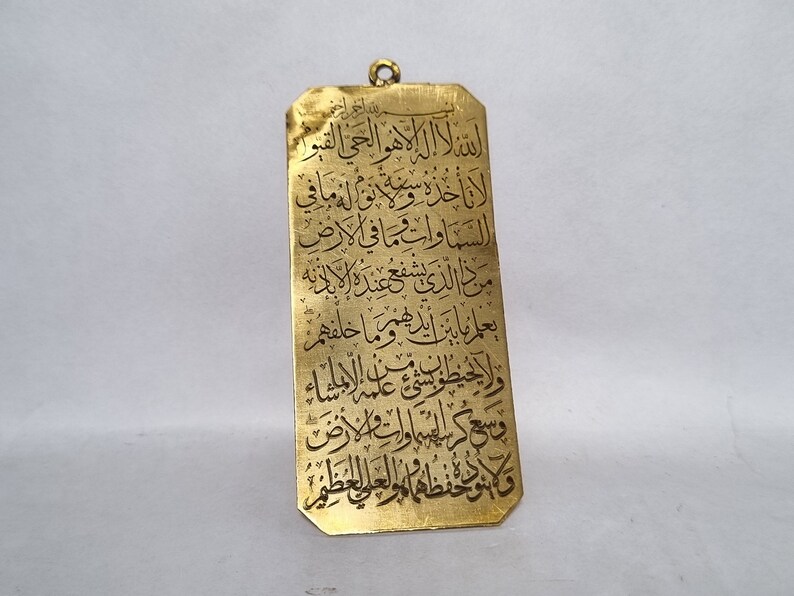 بسم الله الرحمن الرحيم
الله لا اله إلا هو الحي القيوم
لا تأخذه سنة ولا نوم له ما في
السماوات وما في الأرض
من ذا الذي يشفع عنده إلا بإذنه
يعلم ما بين أيديهم وما خلفهم
ولا يحيطون بشيء من علمه إلا بما شاء
وسع كرسيه السماوات والأرض
ولا يئوده حفظهما وهو العلي العظيم